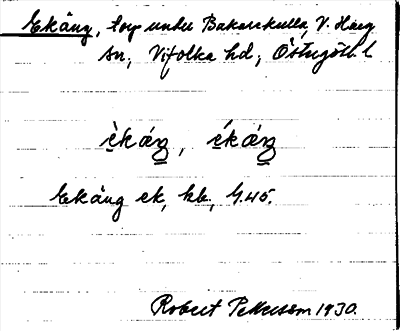 Ekäng, torp under Bakarekulla, V. Harg
sn, Vifolka hd, Östergötl. l
èkáŋ, ékáŋ
Ekäng ek, kb, G.45.
Robert Pettersson 1930.